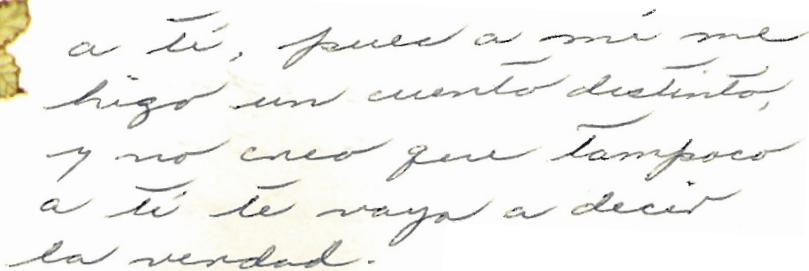 a tí, pues a mí me
hizo un cuento distinto,
y no creo que tampoco
a tí te vaya a decir
la verdad.